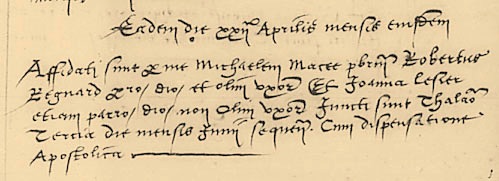 Eadem die xxij Aprilis mensis eiusdem
Affidati sunt per me Michaelem Macee pbrum Robertus
Regnard dio, et olim uxor Et Joanna Lester
etiam parro, dio, non olim uxor Juncti sunt Thalamo
Tercia die mensis Junij sequen. Cum dispensatione
Apostolica